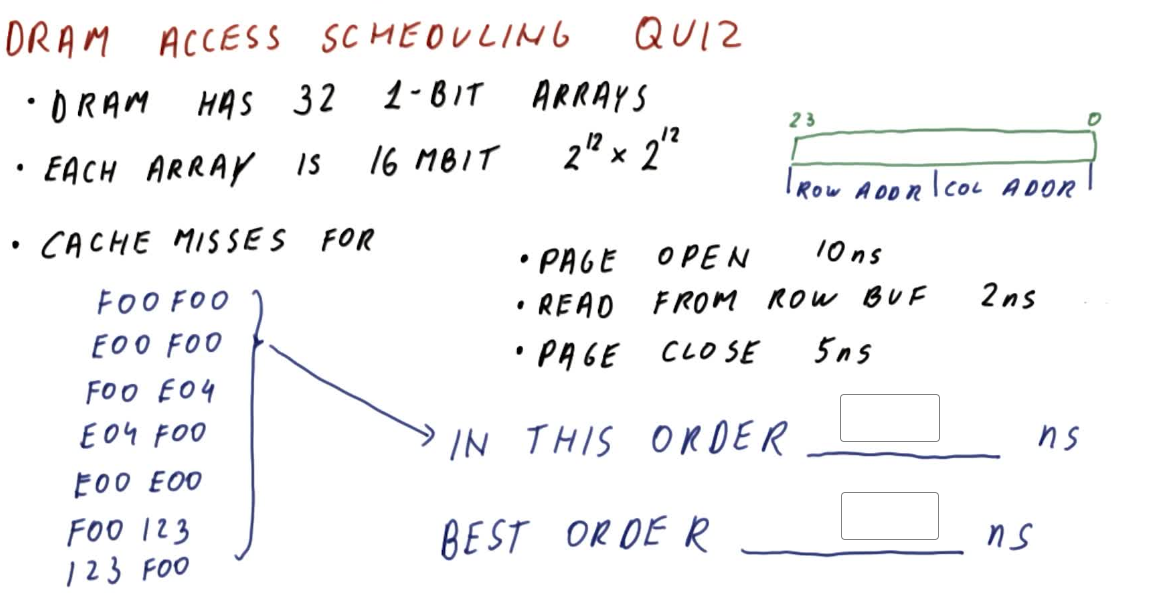 DRAM ACCESS SCHEDULING QUIZ
• DRAM HAS 32 1-BIT ARRAYS
• EACH ARRAY IS 16 MBIT 2^12 x 2^12
23 0
ROW ADDR COL ADDR
• CACHE MISSES FOR
F00 F00
E00 F00
F00 E04
E04 F00
E00 E00
F00 123
123 F00
• PAGE OPEN 10ns
• READ FROM ROW BUF 2ns
• PAGE CLOSE 5ns
IN THIS ORDER ns
BEST ORDER ns